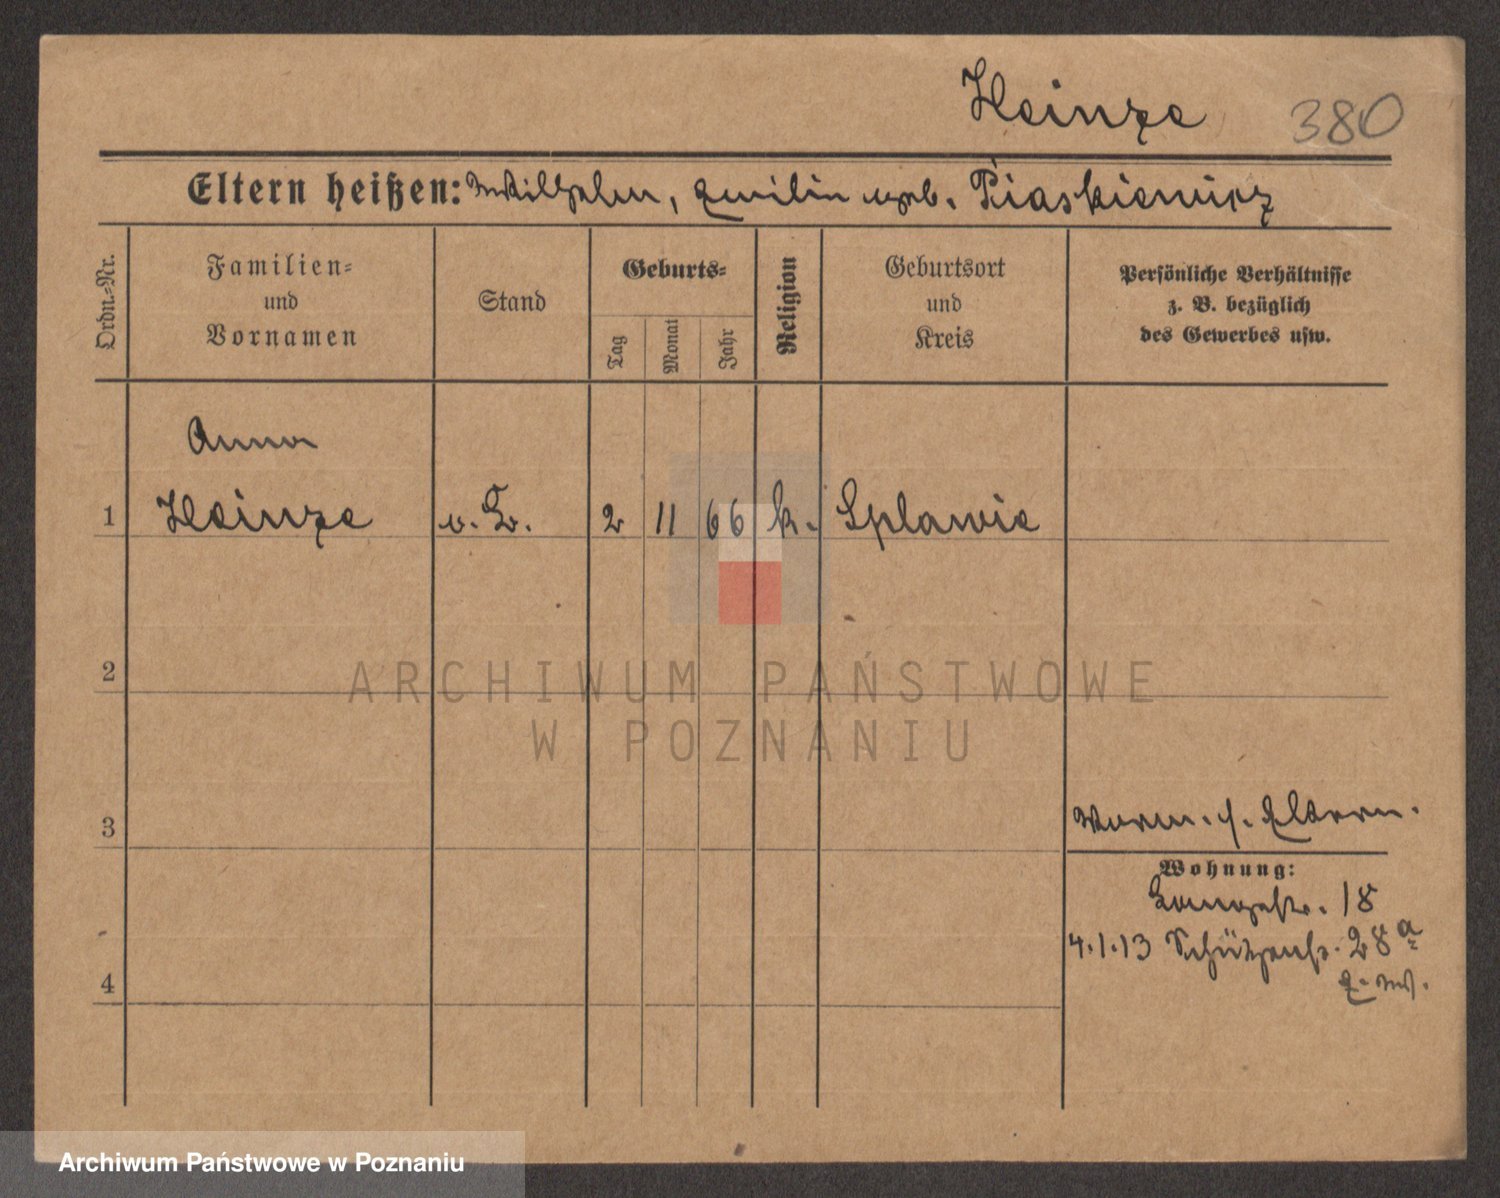 Heinze 380
Eltern heißen: Wilhelm, Emilie geb. Piaskiewicz
Ordn.-Nr.
Familien-
und
Vornamen
Stand
Geburts-
Tag
Monat
Jahr
Religion
Geburtsort
und
Kreis
Persönliche Verhältnisse
z. B. bezüglich
des Gewerbes usw.
Anna
1 Heinze o. 2 11 66 k. Splawie
2
3
4
Vorm. s. Eltern.
Wohnung:
Langestr. 18
4.1.13 Schützenstr. 28a
E. W.
ARCHIWUM PAŃSTWOWE
W POZNANIU
Archiwum Państwowe w Poznaniu